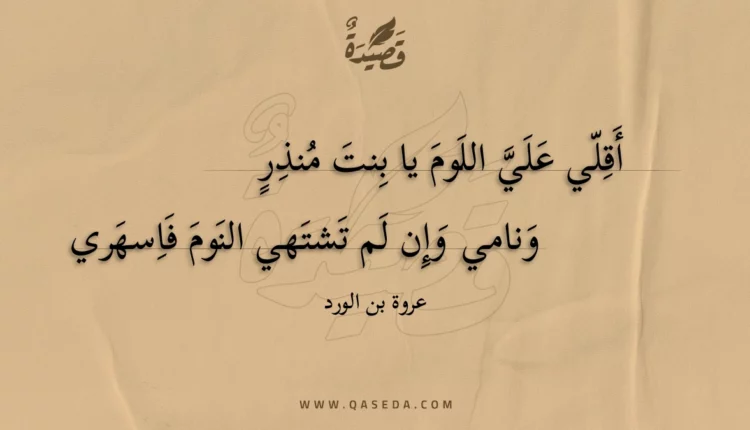 قَصِيْدَةٌ
أَقِلّي عَلَيَّ اللَومَ يا بِنتَ مُنذِرٍ
وَنامي وَإِن لَم تَشتَهي النَومَ فَاِسهَري
عروة بن الورد
WWW.QASEDA.COM